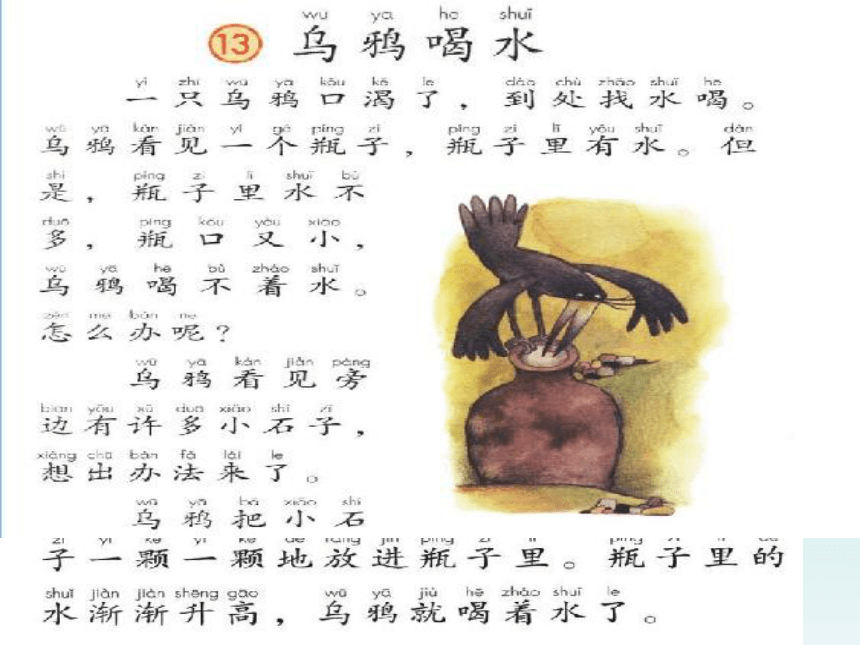 wū yā hē shuǐ
13 乌鸦喝水
yì zhī wū yā kǒu kě le dào chù zhǎo shuǐ hē
一只乌鸦口渴了，到处找水喝。
wū yā kàn jiàn yí gè píng zi píng zi lǐ yǒu shuǐ dàn
乌鸦看见一个瓶子，瓶子里有水。但
shì píng zi lǐ shuǐ bù
是，瓶子里水不
duō píng kǒu yòu xiǎo
多，瓶口又小，
wū yā hē bù zháo shuǐ
乌鸦喝不着水。
zěn me bàn ne
怎么办呢？
wū yā kàn jiàn páng
乌鸦看见旁
biān yǒu xǔ duō xiǎo shí zǐ
边有许多小石子，
xiǎng chū bàn fǎ lái le
想出办法来了。
wū yā bǎ xiǎo shí
乌鸦把小石
zǐ yì kē yì kē de fàng jìn píng zi lǐ píng zi lǐ de
子一颗一颗地放进瓶子里。瓶子里的
shuǐ jiàn jiàn shēng gāo wū yā jiù hē zháo shuǐ le
水渐渐升高，乌鸦就喝着水了。